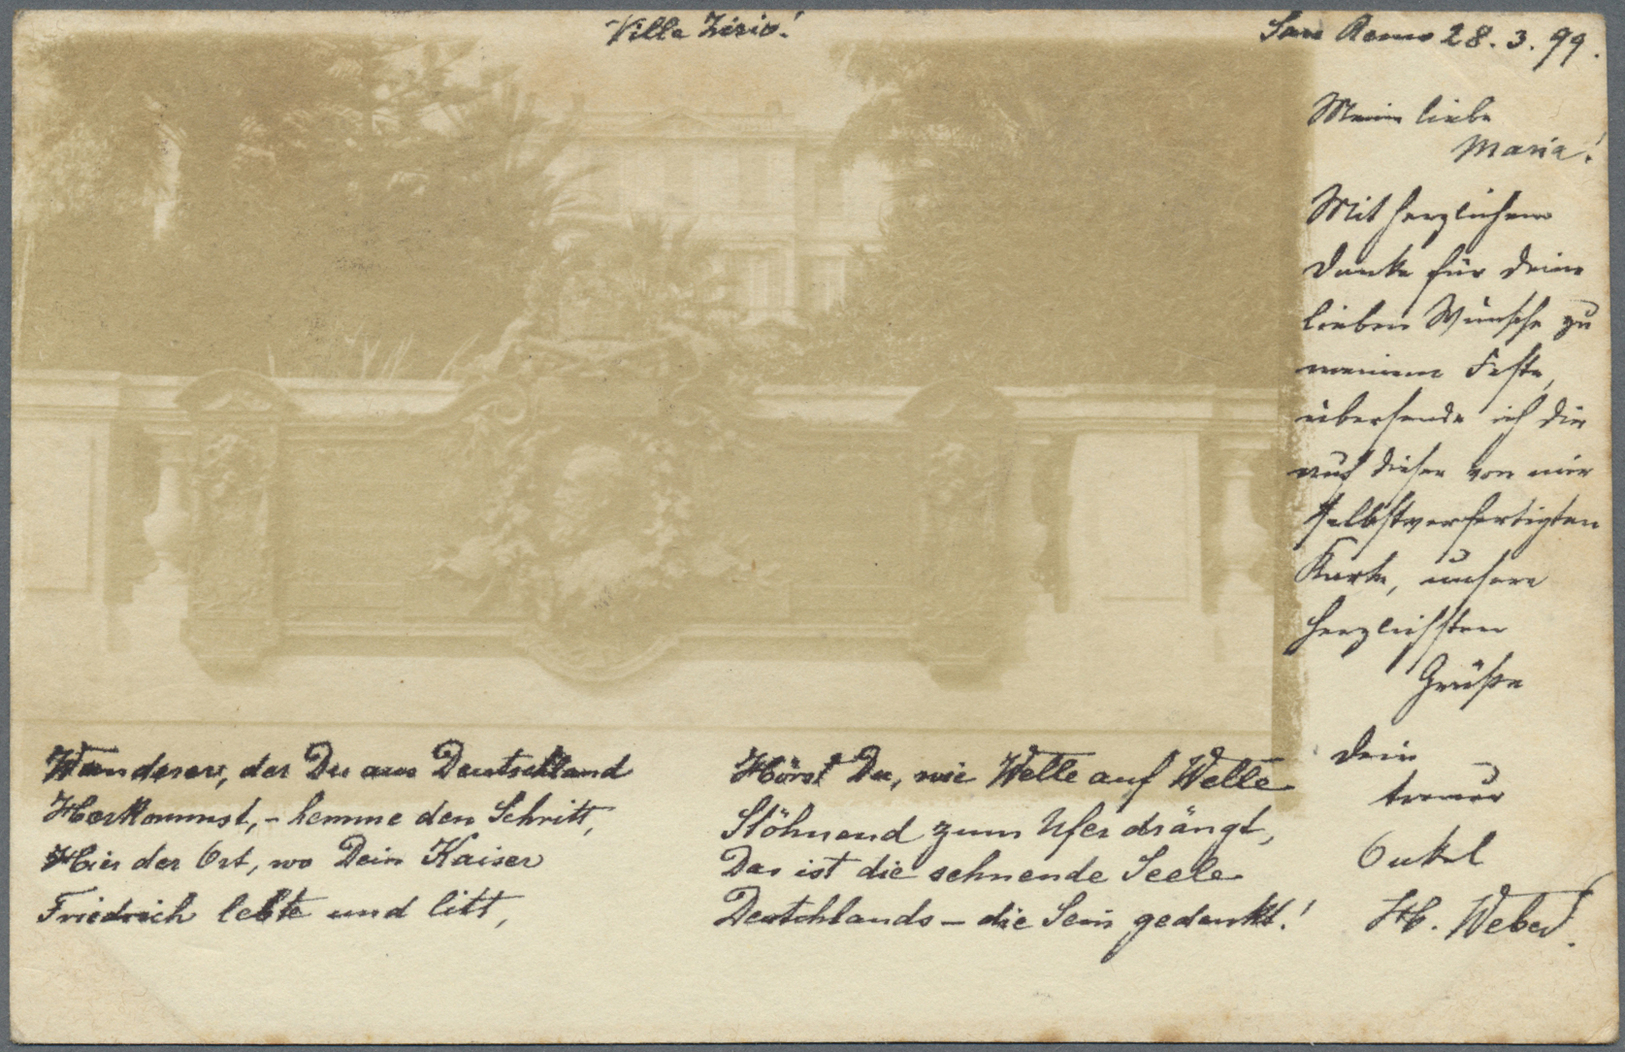 Villa Zirio!
San Remo 28. 3. 99.
Meine liebe
Maria!
Mit herzlichem
Danke für Deine
lieben Wünsche zu
meinem Feste,
übersende ich Dir
auf dieser von mir
selbstverfertigten
Karte, unsere
herzlichsten
Grüße
Dein
treuer
Onkel
H. Weber.
Wanderer, der Du aus Deutschland
Herkommst, – hemme den Schritt,
Hier der Ort, wo Dein Kaiser
Friedrich lebte und litt,
Hörst Du, wie Welle auf Welle
Stöhnend zum Ufer drängt,
Das ist die sehnende Seele
Deutschlands – die Sein gedenkt!